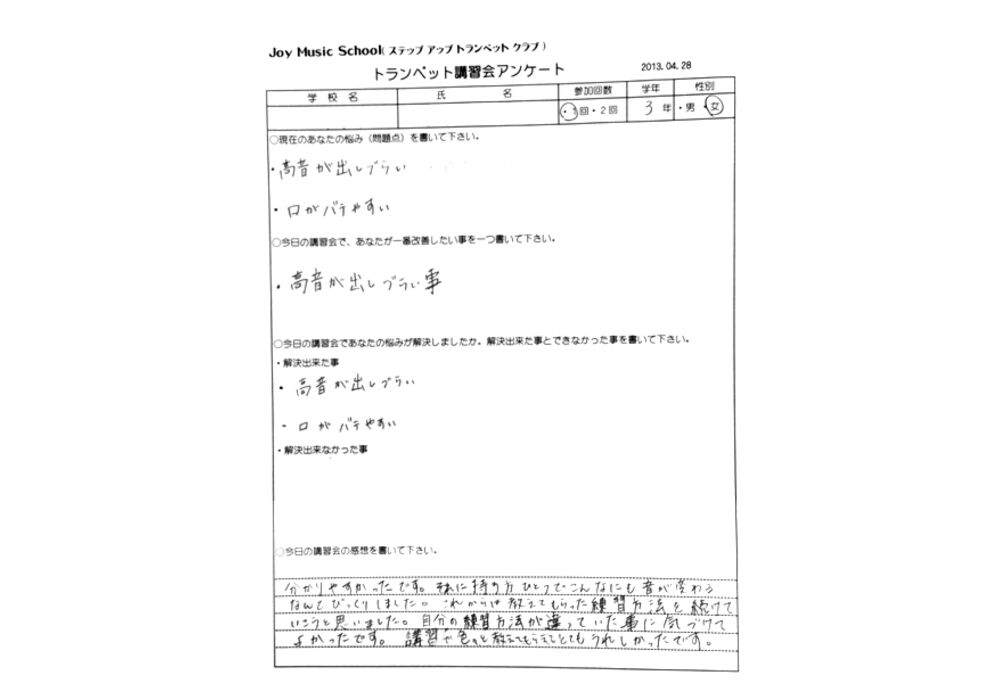 Joy Music School(ステップ アップ トランペット クラブ)
トランペット講習会アンケート
2013.04.28
学校名 氏名 参加回数 学年 性別
1回・2回 3年 ・男・女
○現在のあなたの悩み(問題点)を書いて下さい。
・高音が出しづらい
・口がバテやすい
○今日の講習会で、あなたが一番改善したい事を一つ書いて下さい。
・高音が出しづらい事
○今日の講習会であなたの悩みが解決しましたか。解決出来た事とできなかった事を書いて下さい。
・解決出来た事
・高音が出しづらい
・口がバテやすい
・解決出来なかった事
○今日の講習会の感想を書いて下さい。
分かりやすかったです。それに持ち方ひとつでこんなにも音が変わる
なんてびっくりしました。これからは教えてもらった練習方法を続けて
いこうと思いました。自分の練習方法が違っていた事に気づけて
よかったです。講習で色々と教えてもらえてとてもうれしかったです。